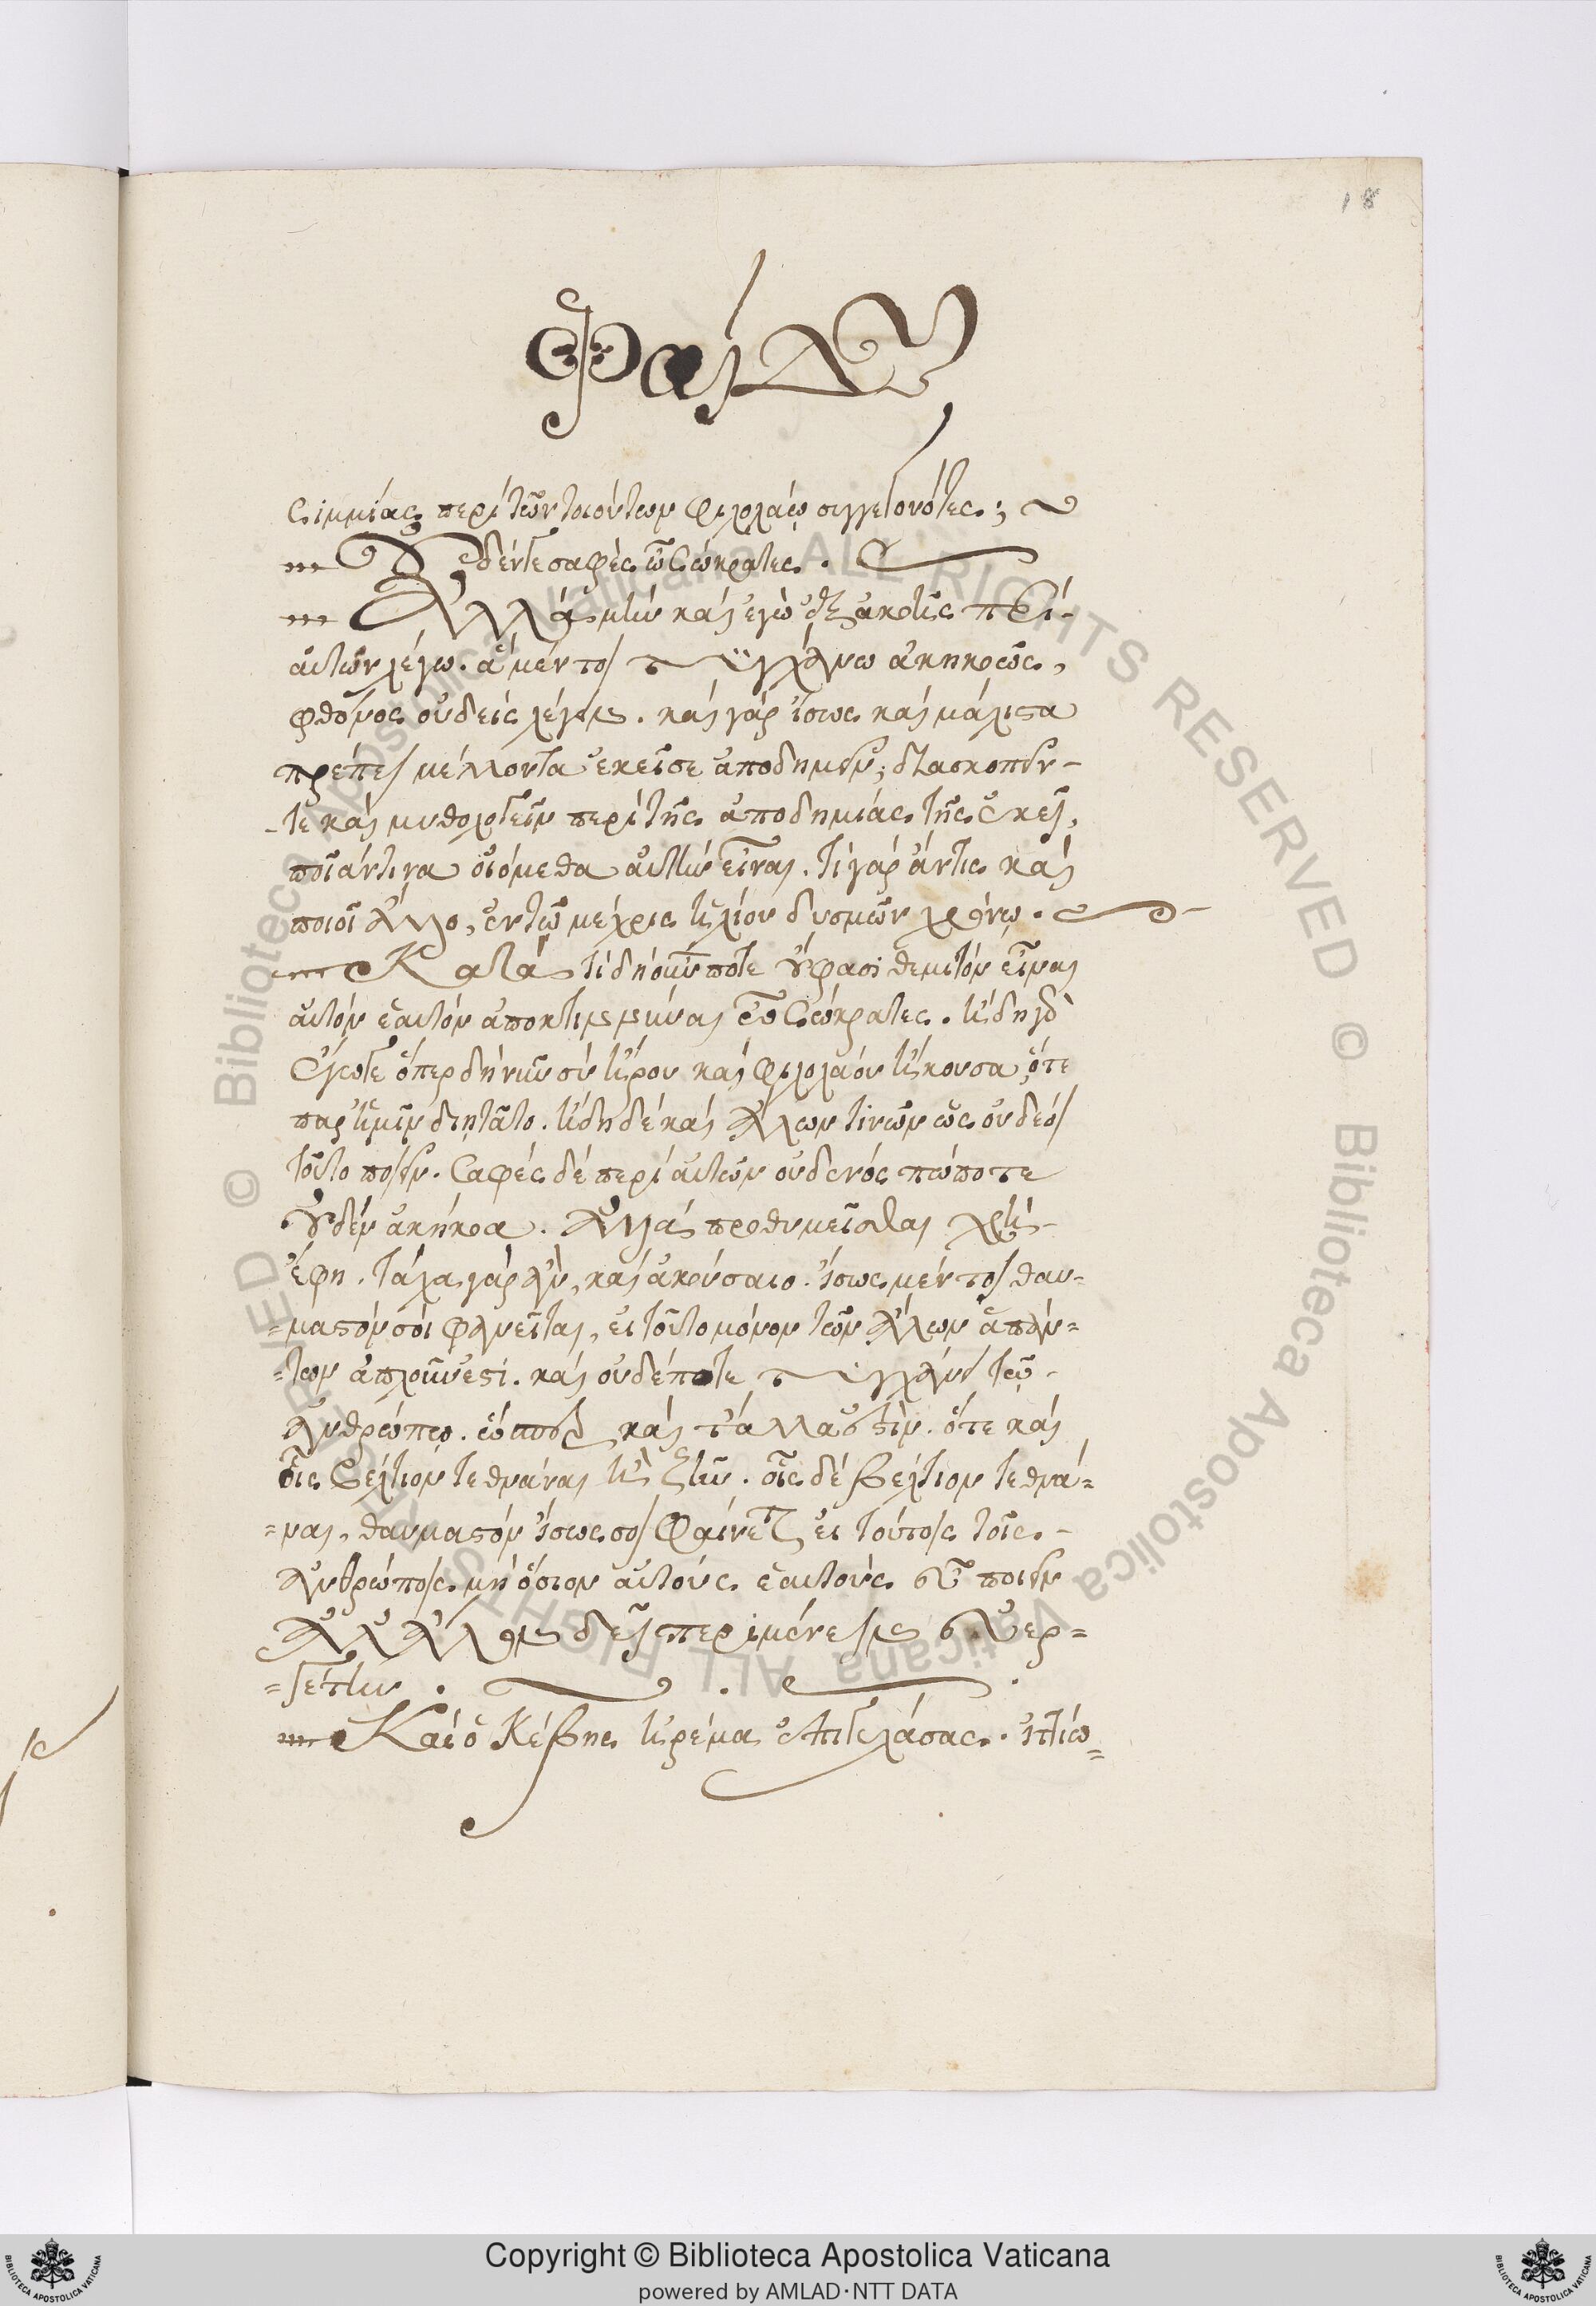 18
Φαίδων
Σιμμίας περὶ τῶν τοιούτων φιλολάῳ συγγεγονότες;
Οὐδέν γε σαφὲς ὦ Σώκρατες.
Ἀλλὰ μὴν καὶ ἐγὼ ἐξ ἀκοῆς περὶ
αὐτῶν λέγω. ἃ μέντοι τυγχάνω ἀκηκοώς,
φθόνος οὐδεὶς λέγειν. καὶ γὰρ ἴσως καὶ μάλιστα
πρέπει μέλλοντα ἐκεῖσε ἀποδημεῖν, διασκοπεῖν
τε καὶ μυθολογεῖν περὶ τῆς ἀποδημίας τῆς ἐκεῖ,
ποίαν τινα οἰόμεθα αὐτὴν εἶναι. τί γὰρ ἄν τις καὶ
ποιοῖ ἄλλο, ἐν τῷ μέχρις ἡλίου δυσμῶν χρόνῳ.
Κατὰ τί δὴ οὖν ποτε οὔ φασι θεμιτὸν εἶναι
αὐτὸν ἑαυτὸν ἀποκτιννύναι ὦ Σώκρατες. ἤδη γὰρ
ἔγωγε ὅπερ δὴ νῦν σὺ ἤρου καὶ φιλολάου ἤκουσα ὅτε
παρ' ἡμῖν διῃτᾶτο. ἤδη δὲ καὶ ἄλλων τινῶν ὡς οὐ δέοι
τοῦτο ποιεῖν. Σαφὲς δὲ περὶ αὐτῶν οὐδενὸς πώποτε
οὐδὲν ἀκήκοα. Ἀλλὰ προθυμεῖσθαι χρὴ
ἔφη. τάχα γὰρ ἂν, καὶ ἀκούσαιο. ἴσως μέντοι θαυ=
=μαστόν σοι φανεῖται, εἰ τοῦτο μόνον τῶν ἄλλων ἁπάν=
=των ἁπλοῦν ἐστί. καὶ οὐδέποτε τυγχάνει τῷ
ἀνθρώπῳ. ὥσπερ καὶ τἄλλα ἐστὶν. ὅτε καὶ
οἷς βέλτιον τεθνάναι ἢ ζῆν. οἷς δὲ βέλτιον τεθνά=
=ναι, θαυμαστὸν ἴσως σοι φαίνεται εἰ τούτοις τοῖς
ἀνθρώποις μὴ ὅσιον αὐτοὺς ἑαυτοὺς εὖ ποιεῖν
ἀλλὰ ἄλλον δεῖ περιμένειν εὐερ=
=γέτην.
Καὶ ὁ Κέβης ἠρέμα ἐπιγελάσας. ἴττιω=